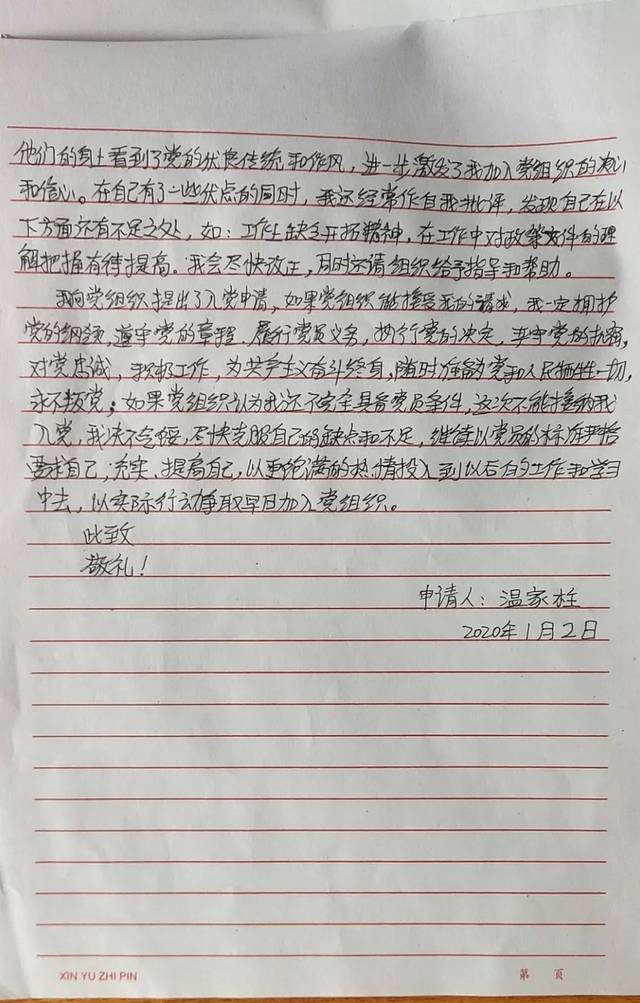 他们的身上看到了党的优良传统和作风，进一步激发了我加入党组织的决心
和信心。在自己有了一些优点的同时，我还经常作自我批评，发现自己在以
下方面还有不足之处，如：工作上缺乏开拓精神，在工作中对政策文件的理
解把握有待提高。我会尽快改正，同时还请组织给予指导和帮助。
我向党组织提出了入党申请，如果党组织能接受我的请求，我一定拥护
党的纲领，遵守党的章程，履行党员义务，执行党的决定，严守党的纪律，
对党忠诚，积极工作，为共产主义奋斗终身，随时准备为党和人民牺牲一切，
永不叛党；如果党组织认为我还不完全具备党员条件，这次不能接纳我
入党，我决不气馁，尽快克服自己的缺点和不足，继续以党员的标准严格
要求自己，充实、提高自己，以更饱满的热情投入到以后的工作和学习
中去，以实际行动争取早日加入党组织。
此致
敬礼！
申请人：温家栓
2020年1月2日
XIN YU ZHI PIN 第 页